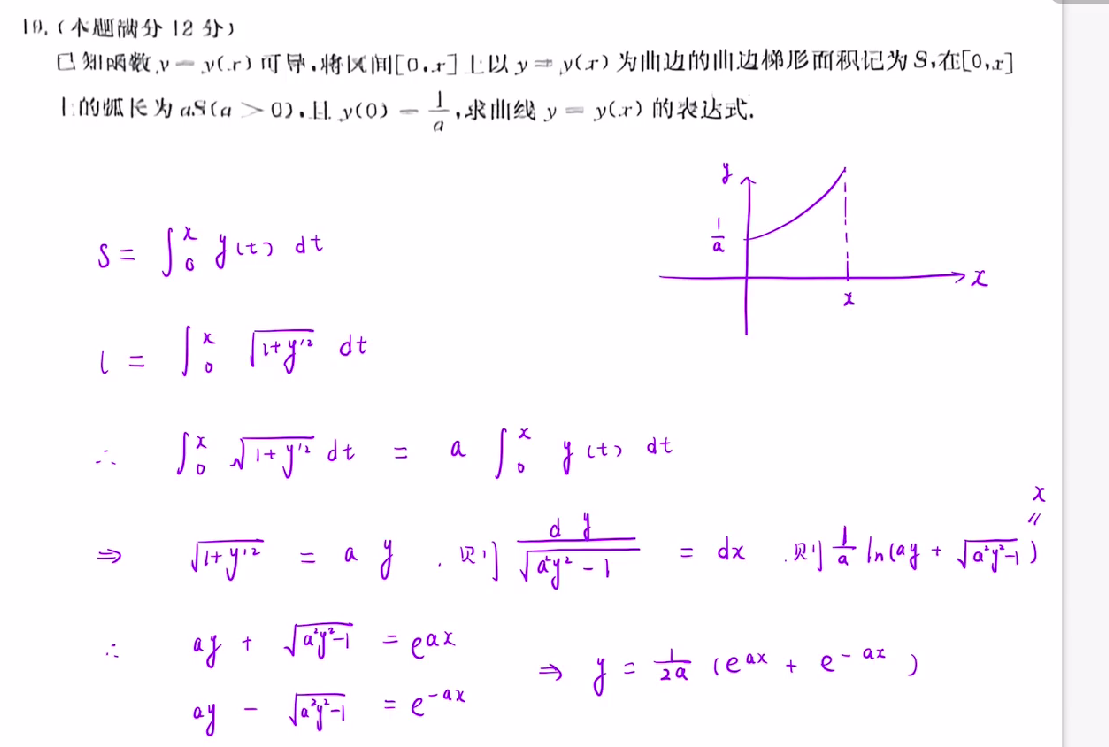 19.(本题满分 12 分)
已知函数 y = y(x) 可导,将区间[0,x]上以 y = y(x) 为曲边的曲边梯形面积记为 S,在[0,x]
上的弧长为 aS(a > 0),且 y(0) = 1/a,求曲线 y = y(x) 的表达式.
y
1/a
x
x
S = ∫₀ˣ y(t) dt
l = ∫₀ˣ √(1+y'²) dt
∴ ∫₀ˣ √(1+y'²) dt = a ∫₀ˣ y(t) dt
⇒ √(1+y'²) = a y . 则 dy/√(a²y²-1) = dx . 则 1/a ln(ay + √(a²y²-1)) = x
∴ ay + √(a²y²-1) = e^(ax)
ay - √(a²y²-1) = e^(-ax)
⇒ y = 1/(2a) (e^(ax) + e^(-ax))